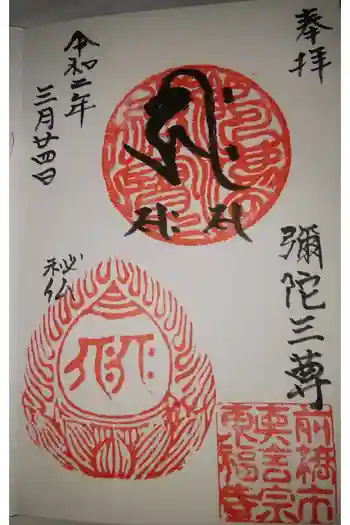 奉拝
彌陀三尊
前橋市
真言宗
東福寺
令和二年
三月廿四日
秘仏